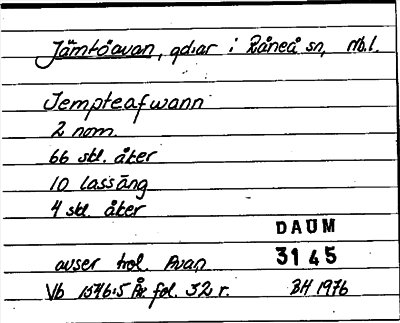 Jämtöavan, gd:ar i Råneå sn, Nb.l.
Jempteafwann
2 nom.
66 skl. åker
10 lass äng
4 skl. åker
DAUM
3145
avser trol. Avan
Vb 1546:5 År fol. 32 r. BH 1976